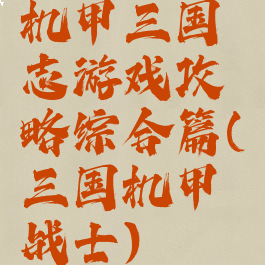 机甲三国
志游戏攻
略综合篇(
三国机甲
战士)